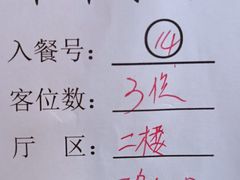 入餐号：14
客位数：3位
厅 区：二楼